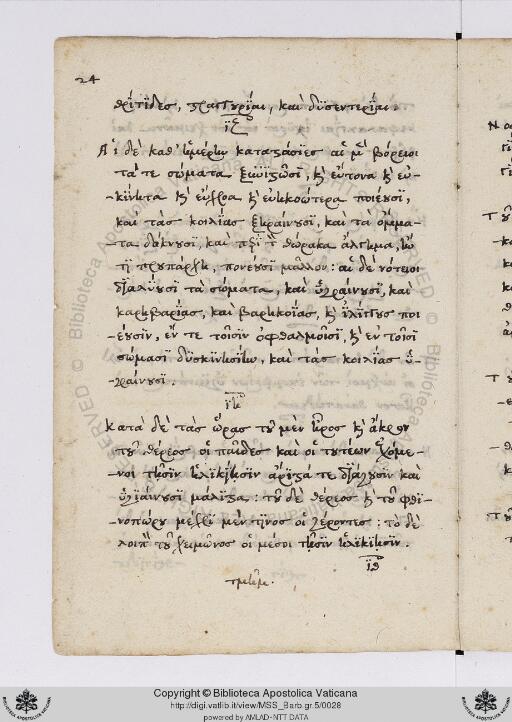 24
θρίτιδες, στραγγουρίαι, καὶ δϋσεντερίαι.
ιζ
Αἱ δὲ καθ' ἡμέρην καταστάσιες αἱ μὲν βόρειοι
τά τε σώματα ξυνιστῶσι, καὶ εὔτονα καὶ εὐ-
-κίνητα καὶ εὔχροα καὶ εὐηκοώτερα ποιέουσι,
καὶ τὰς κοιλίας ξηραίνουσι, καὶ τὰ ὄμμα-
τα δάκνουσι, καὶ περὶ τὸν θώρακα ἄλγημα, ἢν
τι προϋπάρχῃ, πονέουσι μᾶλλον: αἱ δὲ νότειοι
διαλύουσι τὰ σώματα, καὶ ὑγραίνουσι, καὶ
καρηβαρίας, καὶ βαρηκοΐας, καὶ ἰλίγγους ποι
-έουσιν, ἔν τε τοῖσιν ὀφθαλμοῖσι, καὶ ἐν τοῖσι
σώμασι δυσκινησίην, καὶ τὰς κοιλίας ὑ-
γραίνουσι.
ιη
Κατὰ δὲ τὰς ὥρας τοῦ μὲν ἦρος καὶ ἄκρου
τοῦ θέρεος οἱ παῖδες καὶ οἱ τουτέων ἐχόμε-
νοι τῇσιν ἡλικίῃσιν ἄριστά τε διάγουσιν καὶ
ὑγιαίνουσι μάλιστα: τοῦ δὲ θέρεος καὶ τοῦ φθι-
νοπώρου μέχρι μέν τινος οἱ γέροντες: τὸ δὲ
λοιπὸν τοῦ χειμῶνος οἱ μέσοι τῇσιν ἡλικίῃσιν.
ιθ
Copyright © Biblioteca Apostolica Vaticana
http://digi.vatlib.it/view/MSS_Barb.gr.5/0028
powered by AMLAD-NTT DATA